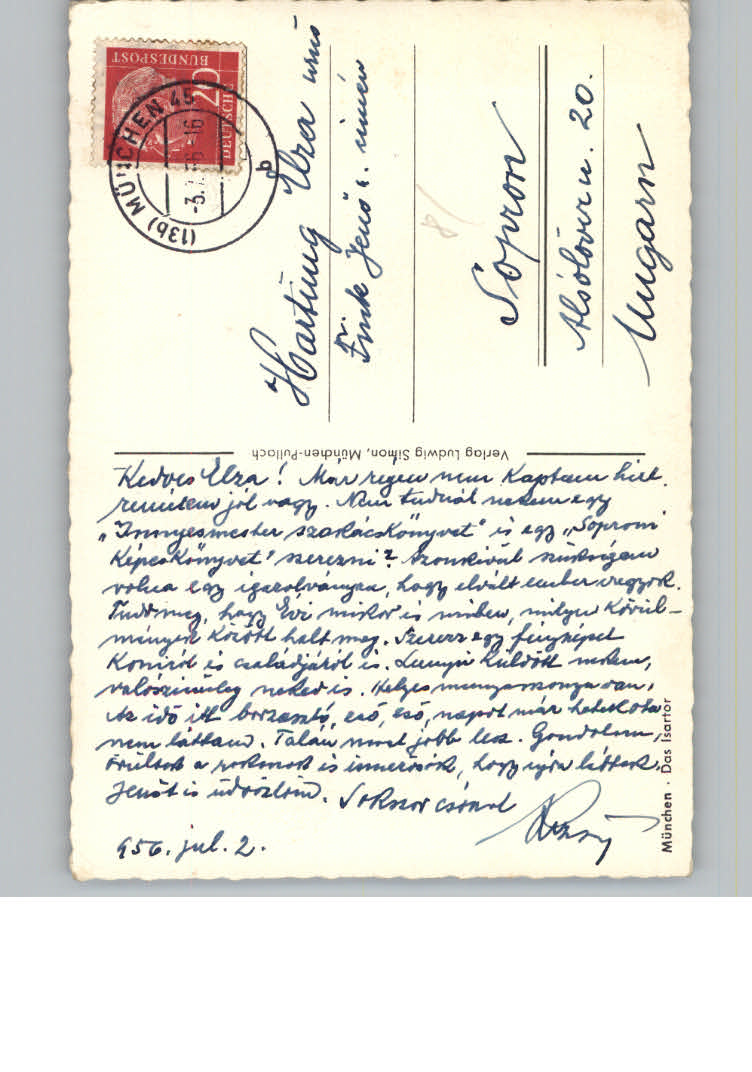 DEUTSCHE
BUNDESPOST
20
(13b) MÜNCHEN 45
-3.7.56-16
b
Hartung Elza
Fink Jenő
Sopron
Alsólővér u. 20.
Ungarn
Verlag Ludwig Simon, München-Pullach
Kedves Elza! Már régen nem kaptam hírt.
remélem jól vagy. Nem tudnál nekem egy
„Innyesmester szakácskönyvet" és egy „Soproni
Képeskönyvet" szerezni? Azonkívül szükségem
volna egy igazolványra, hogy elvált ember vagyok.
Tudd meg, hogy Évi mikor és miben, milyen körül-
mények között halt meg. Szerezz egy fényképet
és családjáról is. küldött nekem,
valószinüleg neked is. Helyes menyasszonya van.
Az idő itt borzasztó, eső, eső, napot már hetek óta
nem láttam. Talán most jobb lesz. Gondolom,
örültek a rokonok és ismerősök, hogy újra láttak.
Jenőt is üdvözlöm. Sokszor csókol
956. jul. 2.
München · Das Isartor